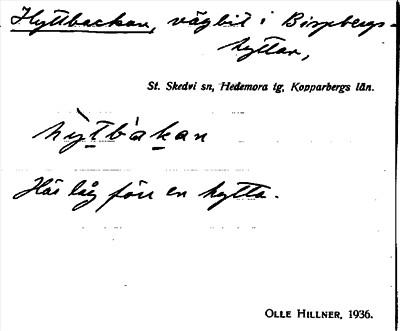 Hyttbackan, vägbit i Bispbergs-
hyttan,
St. Skedvi sn, Hedemora tg, Kopparbergs län.
hỳtbàkan
Här låg förr en hytta.
OLLE HILLNER, 1936.